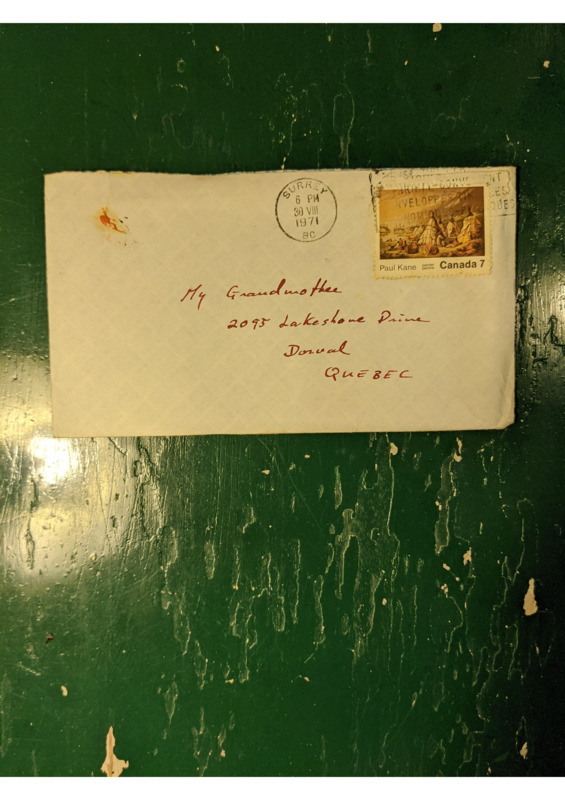 SURREY
6 PM
30 VIII
1971
BC
ENVELOPPES
Paul Kane Canada 7
My Grandmother
2095 Lakeshore Drive
Dorval
QUEBEC